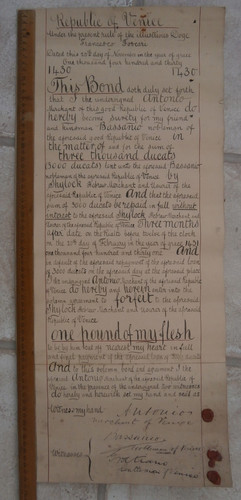 Republic of Venice
Under the present rule of the illustrious Doge
Francesco Foscari
Dated this 20th day of November in the year of grace
One thousand four hundred and thirty
1430 1430
This Bond doth duly set forth
that I the undersigned Antonio
Merchant of this good Republic of Venice do
hereby become surety for my friend
and kinsman Bassanio nobleman of
the aforesaid good Republic of Venice in
the matter of and for the sum of
three thousand ducats
3000 ducats lent unto the aforesaid Bassanio
nobleman of the aforesaid Republic of Venice by
Shylock Hebrew Merchant and Usurer of the
aforesaid Republic of Venice And that the aforesaid
sum of 3000 ducats be repaid in full without
interest to the aforesaid Shylock Hebrew Merchant and
Usurer of the aforesaid Republic of Venice three months
after date on the Rialto before the
on the 20th day of February in the year of grace 1431
one thousand four hundred and thirty one And
in default of the aforesaid repayment of the aforesaid loan
of 3000 ducats on the aforesaid day at the aforesaid place
I the undersigned Antonio Merchant of the aforesaid Republic
of Venice do hereby and herein enter into the
solemn agreement to forfeit to the aforesaid
Shylock Hebrew Merchant and Usurer of the aforesaid
Republic of Venice
one pound of my flesh
to be by him cut off nearest my heart in full
and payment of the aforesaid loan of 3000 ducats
And to this solemn bond and agreement I the
aforesaid Antonio Merchant of the aforesaid Republic of
Venice in the presence of the undersigned two witnesses
do hereby and herein set my hand and seal
Witness my hand Antonio
Merchant of Venice
Bassanio
Witnesses Gentleman of Venice
Gentleman of Venice